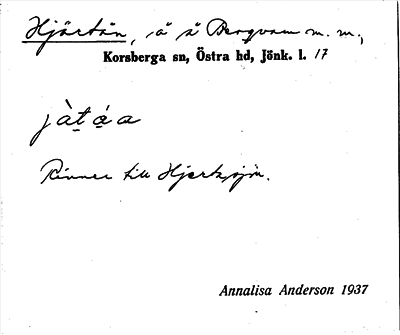 Hjärtån, å å Bergvam m. m.,
Korsberga sn, Östra hd, Jönk. l. 17
jàtáa
Rinner till Hjertsjön.
Annalisa Anderson 1937